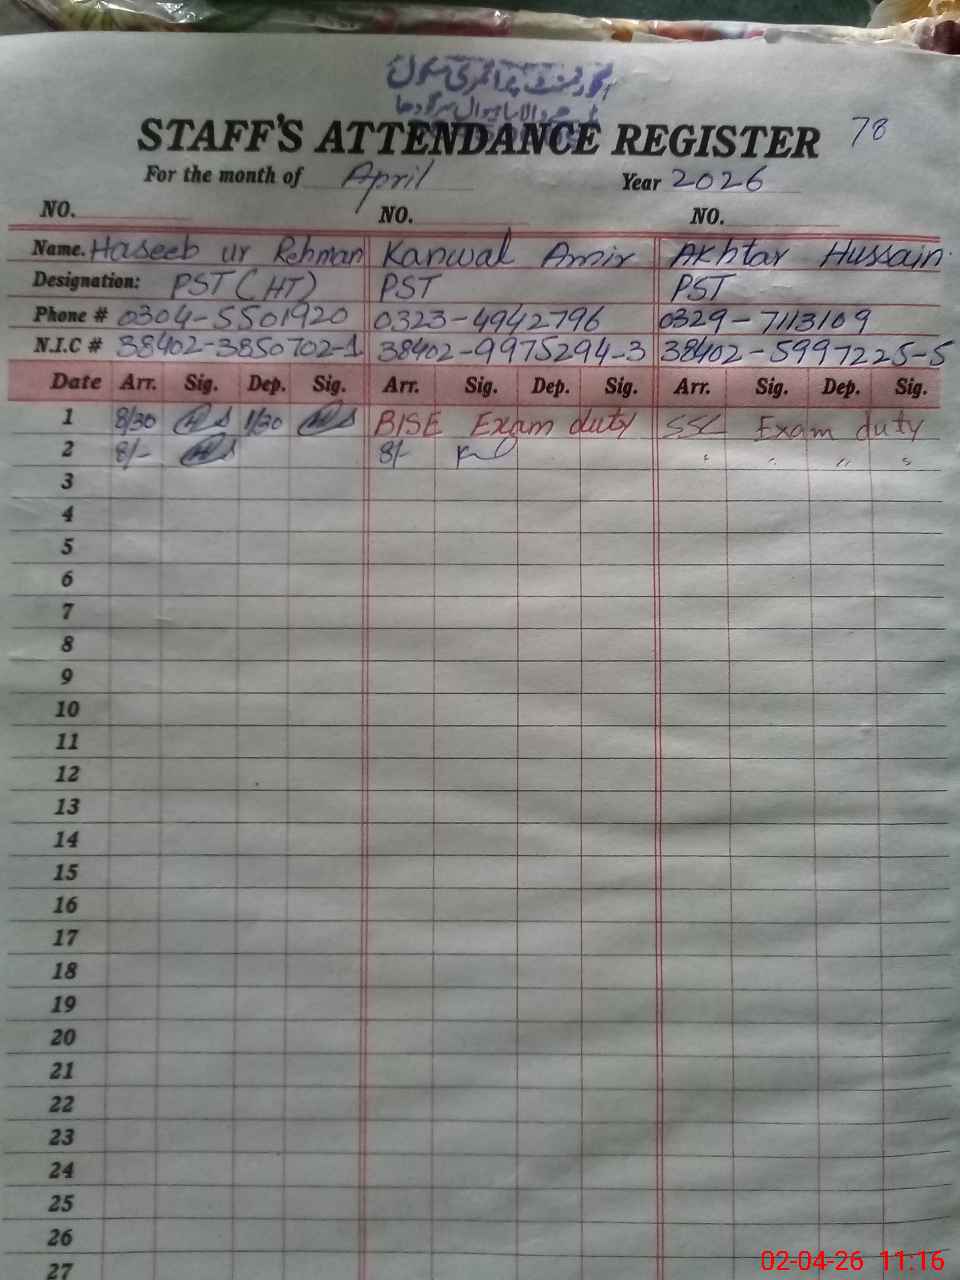 گورنمنٹ پرائمری سکول
STAFF'S ATTENDANCE REGISTER 78
For the month of April Year 2026
NO. NO. NO.
Name. Haseeb ur Rehman Kanwal Amir Akhtar Hussain
Designation: PST (HT) PST PST
Phone # 0304-5501920 0323-4942796 0329-7113109
N.I.C # 38402-3850702-1 38402-9975294-3 38402-5997225-5
Date Arr. Sig. Dep. Sig. Arr. Sig. Dep. Sig. Arr. Sig. Dep. Sig.
1 8/30 1/30 BISE Exam duty SSC Exam duty
2 8/- 8/- " " " "
3
4
5
6
7
8
9
10
11
12
13
14
15
16
17
18
19
20
21
22
23
24
25
26
27
02-04-26 11:16